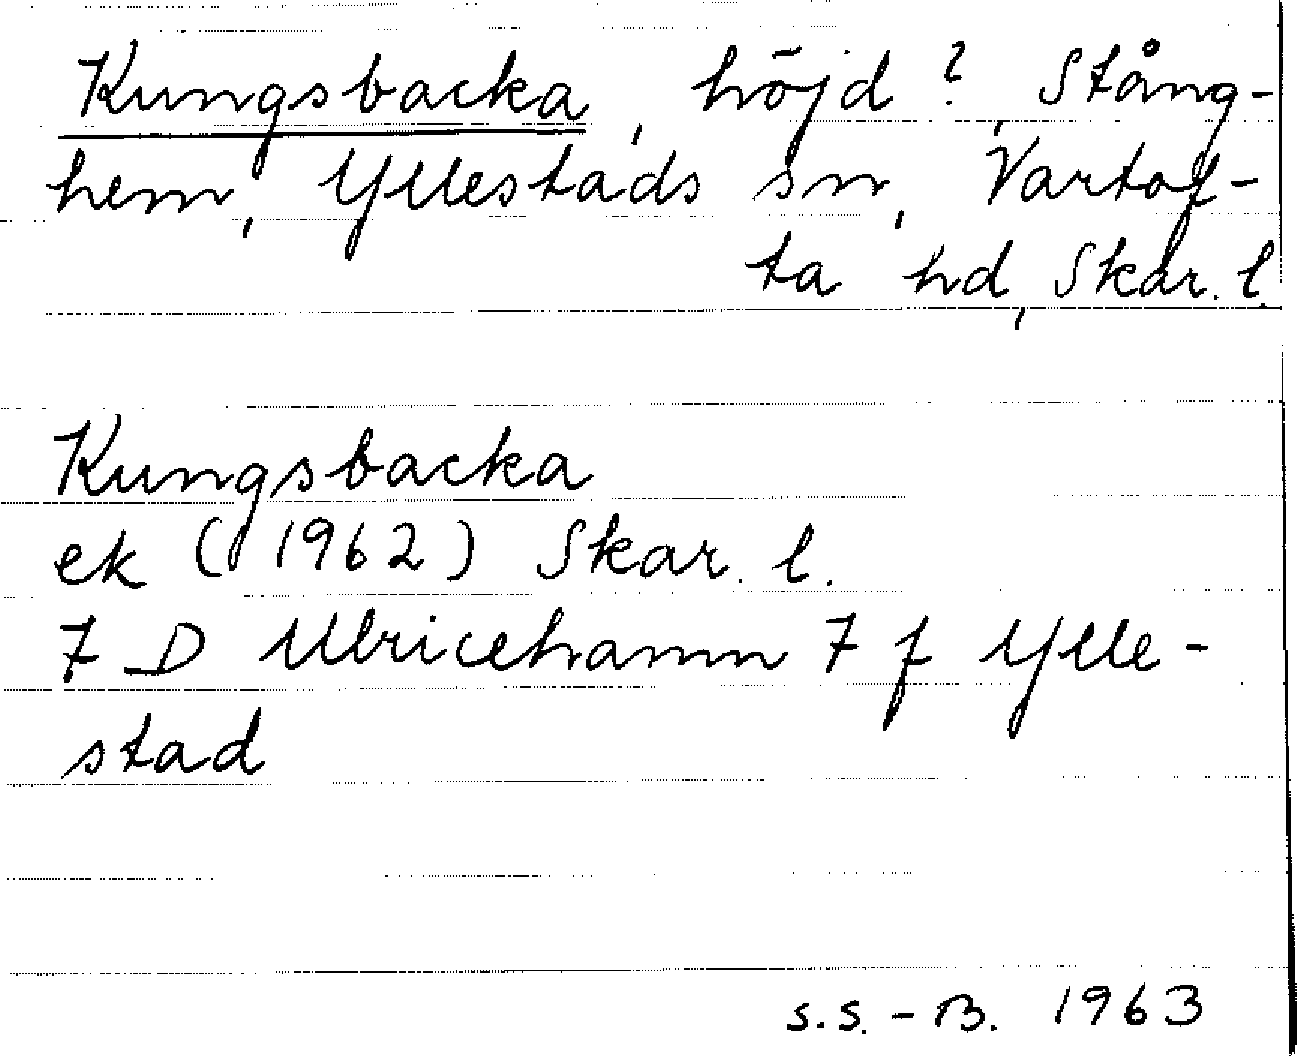 Kungsbacka, höjd?, Stång-
hem, Yllestads sn, Vartof-
ta hd, Skar. l.
Kungsbacka
ek (1962) Skar. l.
7 D Ulricehamn 7 f Ylle-
stad
S.S.-B. 1963